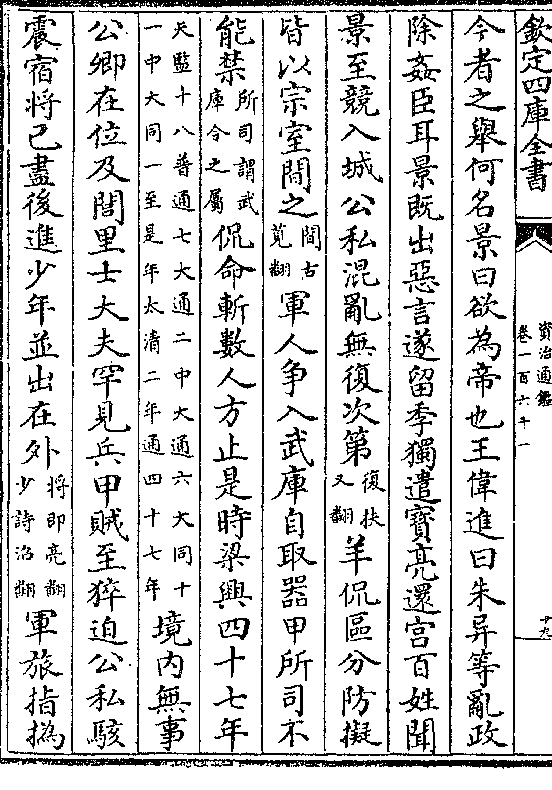 欽定四庫全書
資治通鑑
卷一百六十一
十九
今者之舉何名景曰欲為帝也王偉進曰朱异等亂政
除姦臣耳景既出惡言遂留季獨遣寶亮還宫百姓聞
景至競入城公私混亂無復次第復扶又翻羊侃區分防擬
皆以宗室間之間古莧翻軍人争入武庫自取器甲所司不
能禁所司謂武庫令之屬侃命斬數人方止是時梁興四十七年
天監十八普通七大通二中大通六大同十一中大同一至是年太清二年通四十七年境内無事
公卿在位及閭里士大夫罕見兵甲賊至猝迫公私駭
震宿將已盡後進少年並出在外將即亮翻少詩沼翻軍旅指撝